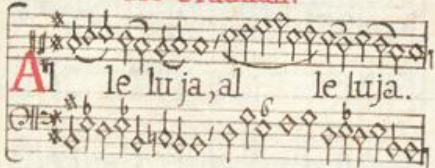 Al le luja, al le luja.